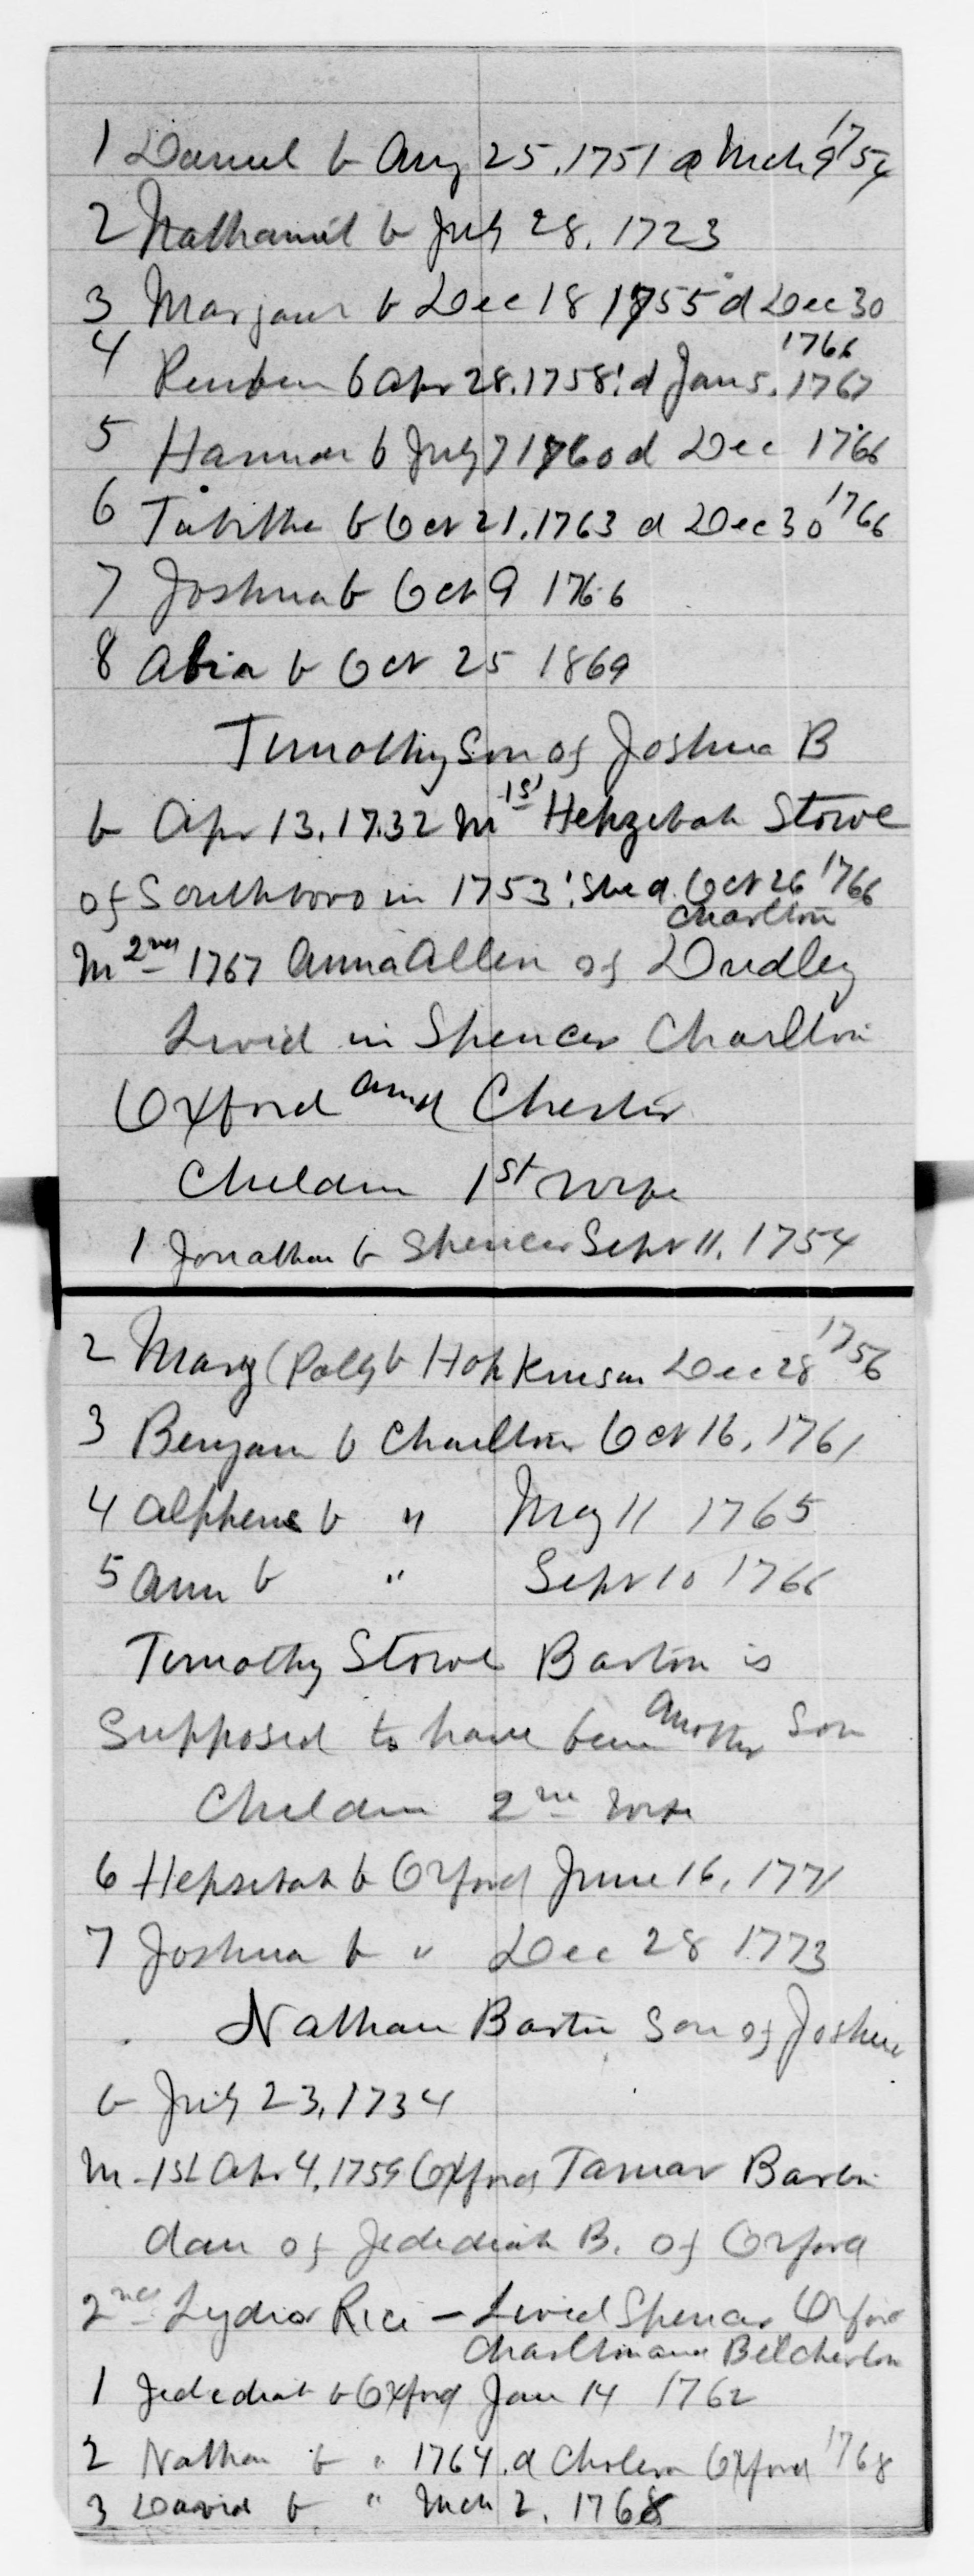 1 Daniel b Aug 25, 1751 d Mch 9 1754
2 Nathaniel b July 28, 1723
3 Marjam b Dec 18 1755 d Dec 30
1766
4 Reuben b Apr 28, 1758 d Jan 5, 1767
5 Hannah b July 7 1760 d Dec 1766
6 Tabitha b Oct 21, 1763 d Dec 30 1766
7 Joshua b Oct 9 1766
8 Abia b Oct 25 1869
Timothy Son of Joshua B
b Apr 13, 1732 m 1st Hepzebah Stowe
of Southboro in 1753 She d. Oct 26 1766
Charlton
m 2nd 1767 Anna Allen of Dudley
Lived in Spencer Charlton
Oxford and Chester
Children 1st wife
1 Jonathan b Spencer Sept 11, 1754
2 Mary (Polly b Hopkinson Dec 28 1756
3 Benjam b Charlton Oct 16, 1761
4 Alpheus b " May 11 1765
5 Ann b " Sept 10 1766
Timothy Stowe Barton is
Supposed to have been another Son
Children 2nd wife
6 Hepsebah b Oxford June 16, 1771
7 Joshua b " Dec 28 1773
Nathan Barton Son of Joshua
b July 23, 1734
m 1st Apr 4, 1759 Oxford Tamar Barton
dau of Jedediah B. of Oxford
2nd Lydia Rice – Lived Spencer Oxford
Charlton and Belcherton
1 Jedediah b Oxford Jan 14 1762
2 Nathan b " 1764. d Cholera Oxford 1768
3 David b " Mch 2, 1768